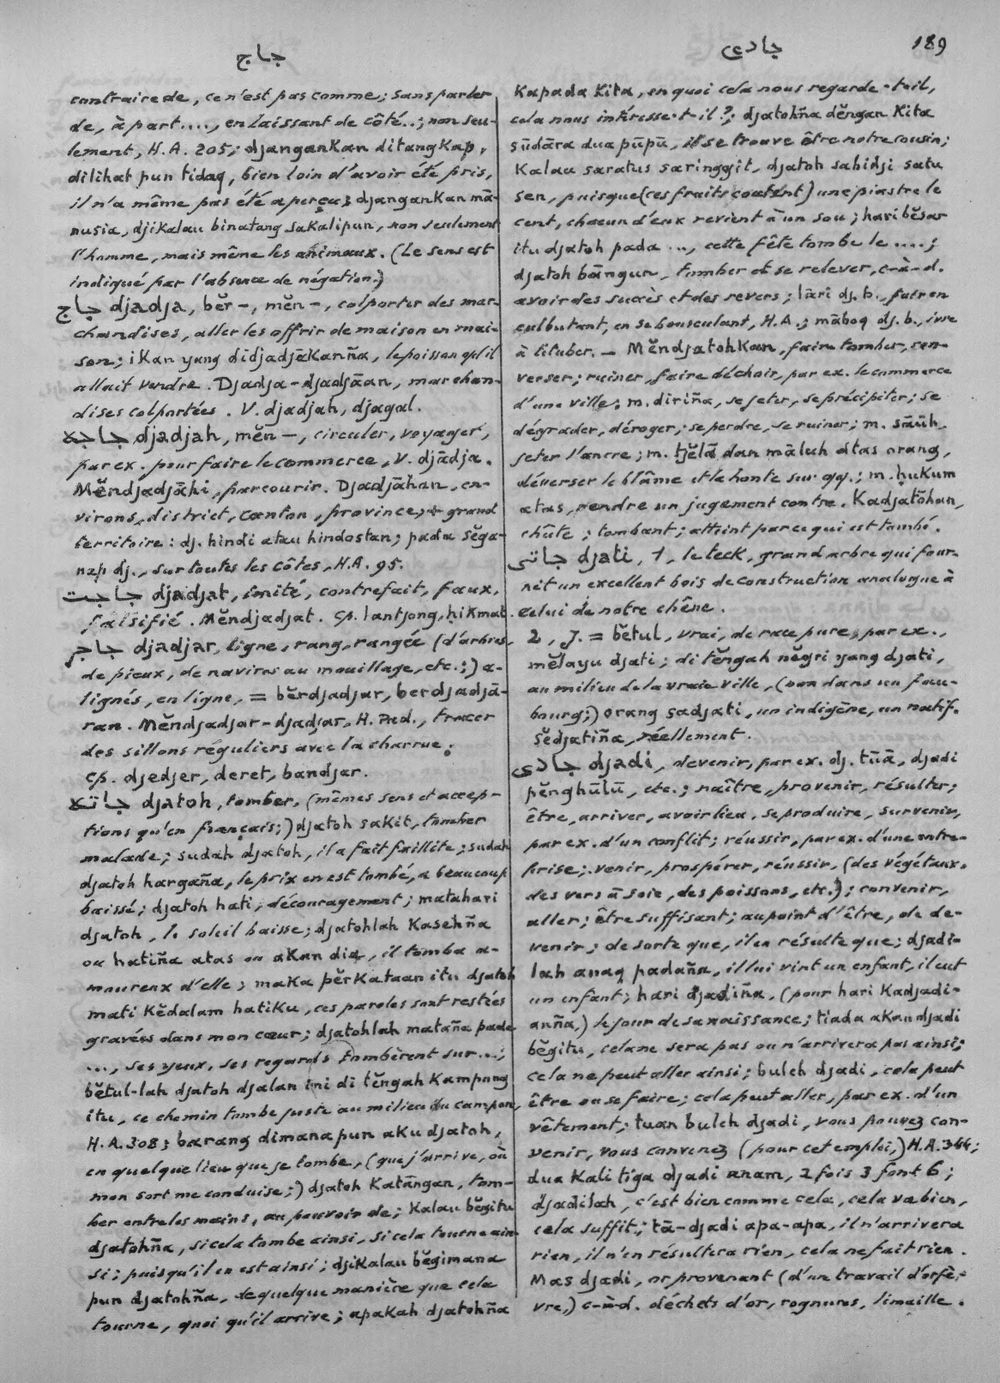 جاج
جادي
189
contraire de, ce n'est pas comme; sans parler
de, à part...., en laissant de côté..; non seu-
lement, H.A. 205; djangankan ditangkap,
dilihat pun tidaq, bien loin d'avoir été pris,
il n'a même pas été aperçu; djangankan mā-
nusia, djikalau binatang sakalipun, non seulement
l'homme, mais même les animaux. (Le sens est
indiqué par l'absence de négation.)
جاج djadja, bĕr-, mĕn-, colporter des mar-
chandises, aller les offrir de maison en mai-
son; ikan yang didjadjākanña, le poisson qu'il
allait vendre. Djadja-djadjāan, marchan-
dises colportées. V. djadjah, djagal.
جاجه djadjah, mĕn-, circuler, voyager,
par ex. pour faire le commerce, V. djādja.
Mĕndjadjāhi, parcourir. Djadjāhan, en-
virons, district, canton, province, + grand
territoire: dj. hindi atau hindostan; pada sĕga-
nap dj., sur toutes les côtes, H.A. 95.
جاجت djadjat, imité, contrefait, faux,
falsifié. Mĕndjadjat. Cp. lantjong, hikmat.
جاجر djadjar, ligne, rang, rangée (d'arbres,
de pieux, de navires au mouillage, etc.;) a-
lignés, en ligne, = bĕrdjadjar, berdjadjā-
ran. Mĕndjadjar-djadjar, H. Pad., tracer
des sillons réguliers avec la charrue.
Cp. djedjer, deret, bandjar.
جاته djatoh, tomber, (mêmes sens et accep-
tions qu'en français;) djatoh sakit, tomber
malade; sudah djatoh, il a fait faillite; sudah
djatoh hargaña, le prix en est tombé, a beaucoup
baissé; djatoh hati, découragement; matahari
djatoh, le soleil baisse; djatohlah kasehña
ou hatiña atas ou akan dia, il tomba a-
moureux d'elle; maka pĕrkataan itu djatoh
mati kĕdalam hatiku, ces paroles sont restées
gravées dans mon cœur; djatohlah mataña pada
..., ses yeux, ses regards tombèrent sur...;
bĕtul-lah djatoh djalan ini di tĕngah kampung
itu, ce chemin tombe juste au milieu du campon,
H.A. 308; barang dimana pun aku djatoh,
en quelque lieu que je tombe, (que j'arrive, où
mon sort me conduise;) djatoh katāngan, tom-
ber entre les mains, au pouvoir de; kalau bĕgitu
djatohña, si cela tombe ainsi, si cela tourne ain-
si; puisqu'il en est ainsi; djikalau bĕgimana
pun djatohña, de quelque manière que cela
tourne, quoi qu'il arrive; apakah djatohña
kapada kita, en quoi cela nous regarde-t-il,
cela nous intéresse-t-il?; djatohña dĕngan kita
sūdāra dua pūpū, il se trouve être notre cousin;
kalau saratus saringgit, djatoh sabidji satu
sen, puisque (ces fruits coûtent) une piastre le
cent, chacun d'eux revient à un sou; hari bĕsar
itu djatoh pada ..., cette fête tombe le ....;
djatoh bāngun, tomber et se relever, c-à-d.
avoir des succès et des revers; lāri dj. b., fuir en
culbutant, en se bousculant, H.A.; māboq dj. b., ivre
à tituber. — Mĕndjatohkan, faire tomber, ren-
verser; ruiner, faire déchoir, par ex. le commerce
d'une ville; m. diriña, se jeter, se précipiter; se
dégrader, déroger; se perdre, se ruiner; m. sāūh,
jeter l'ancre; m. tjĕlā dan māluh atas orang,
déverser le blâme et la honte sur qq.; m. hukum
atas, rendre un jugement contre. Kadjatōhan,
chûte; tombant; atteint par ce qui est tombé.
جاتي djati, 1, le teck, grand arbre qui four-
nit un excellent bois de construction analogue à
celui de notre chêne.
2, J. = bĕtul, vrai, de race pure, par ex.,
mĕlayu djati; di tĕngah nĕgri yang djati,
au milieu de la vraie ville, (non dans un fau-
bourg;) orang sadjati, un indigène, un natif.
Sĕdjatiña, réellement.
جادي djadi, devenir, par ex. dj. tūā, djadi
pĕnghūlū, etc.; naître, provenir, résulter;
être, arriver, avoir lieu, se produire, survenir,
par ex. d'un conflit; réussir, par ex. d'une entre-
prise; venir, prospérer, réussir, (des végétaux,
des vers à soie, des poissons, etc.); convenir,
aller; être suffisant; au point d'être, de de-
venir; de sorte que, il en résulte que; djadi-
lah anaq padaña, il lui vint un enfant, il eut
un enfant; hari djadiña, (pour hari kadjadi-
anña,) le jour de sa naissance; tiada akan djadi
bĕgitu, cela ne sera pas ou n'arrivera pas ainsi;
cela ne peut aller ainsi; buleh djadi, cela peut
être ou se faire; cela peut aller, par ex. d'un
vêtement; tuan buleh djadi, vous pouvez con-
venir, vous convenez (pour cet emploi,) H.A. 344;
dua kali tiga djadi anam, 2 fois 3 font 6;
djadilah, c'est bien comme cela, cela va bien,
cela suffit; tā-djadi apa-apa, il n'arrivera
rien, il n'en résultera rien, cela ne fait rien.
Mas djadi, or provenant (d'un travail d'orfè-
vre,) c-à-d. déchets d'or, rognures, limaille.